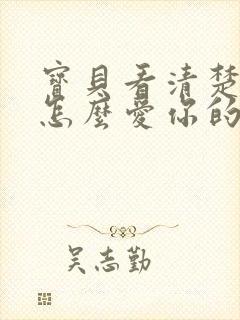 寶貝看清楚
怎麼愛你的
吴志勤